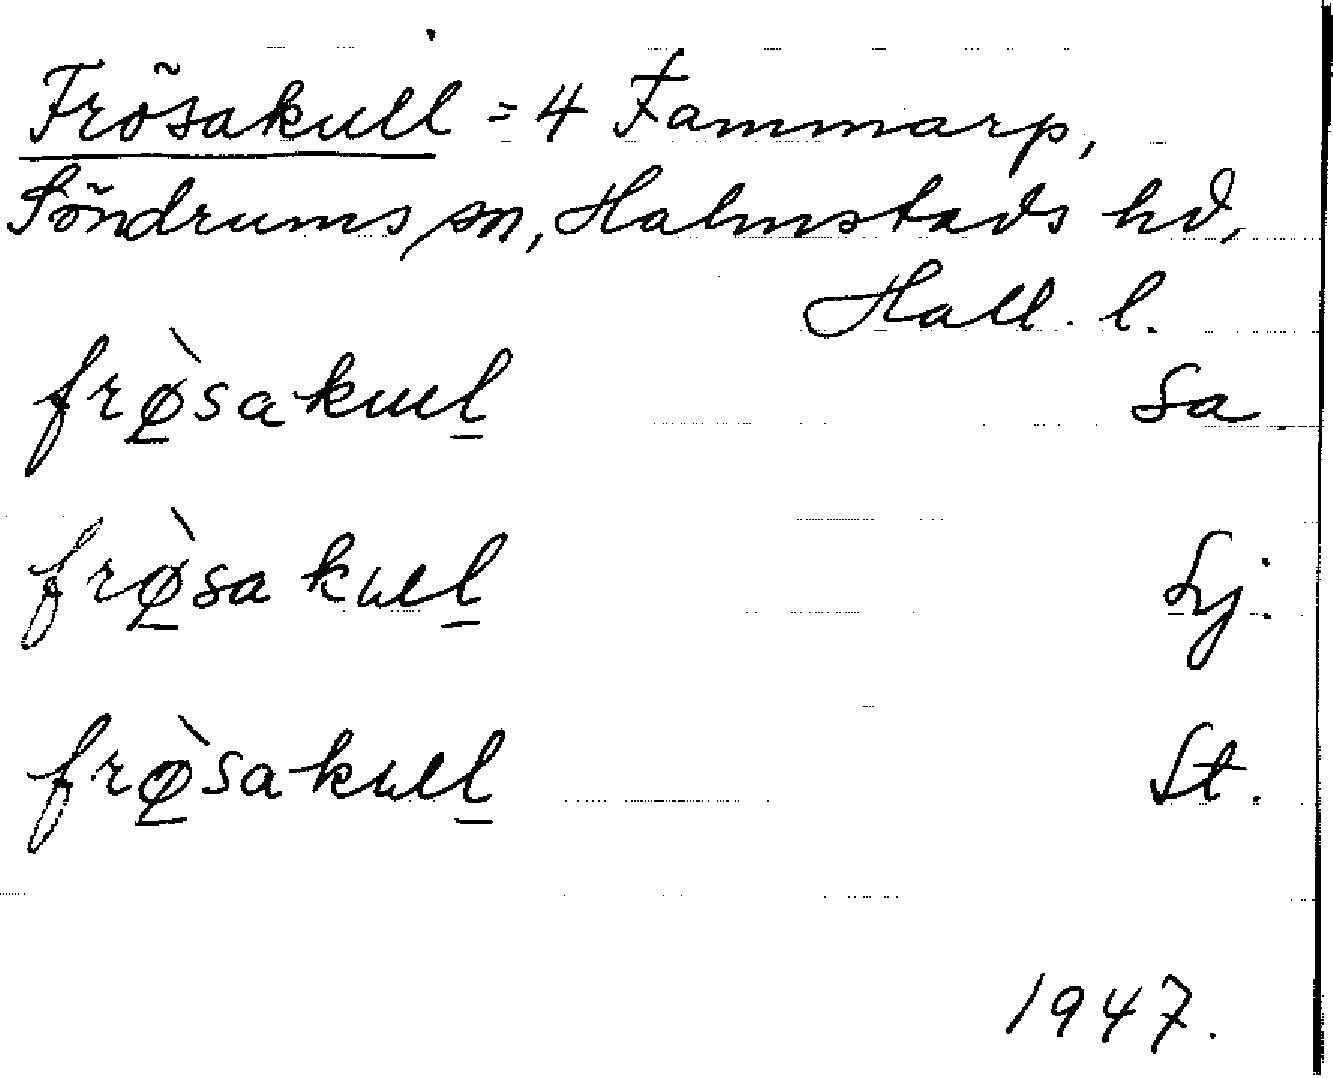 Frösakull = 4 Fammarp,
Söndrums sn, Halmstads hd,
Hall. l.
frø̀sakull Sa
frø̀sakull Lj.
frø̀sakull St.
1947.